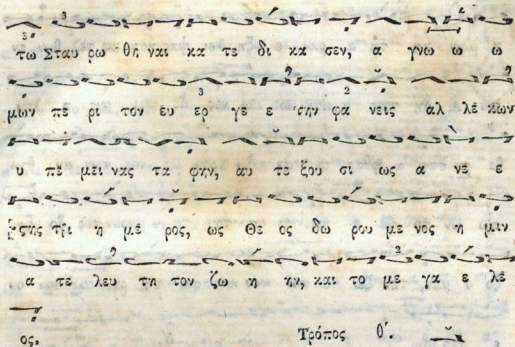 τω Σταυ ρω θη ναι κα τε δι κα σεν, α γνω ω ω
μων πε ρι τον ευ ερ γε ε την φα νεις αλ λε κων
υ πε μει νας τα φην, αυ τε ξου σι ως α νε ε
στης τρι η με ρος, ως Θε ος δω ρου με νος η μιν
α τε λευ τη τον ζω η ην, και το με γα ε λε
ος. Τρόπος θ'.